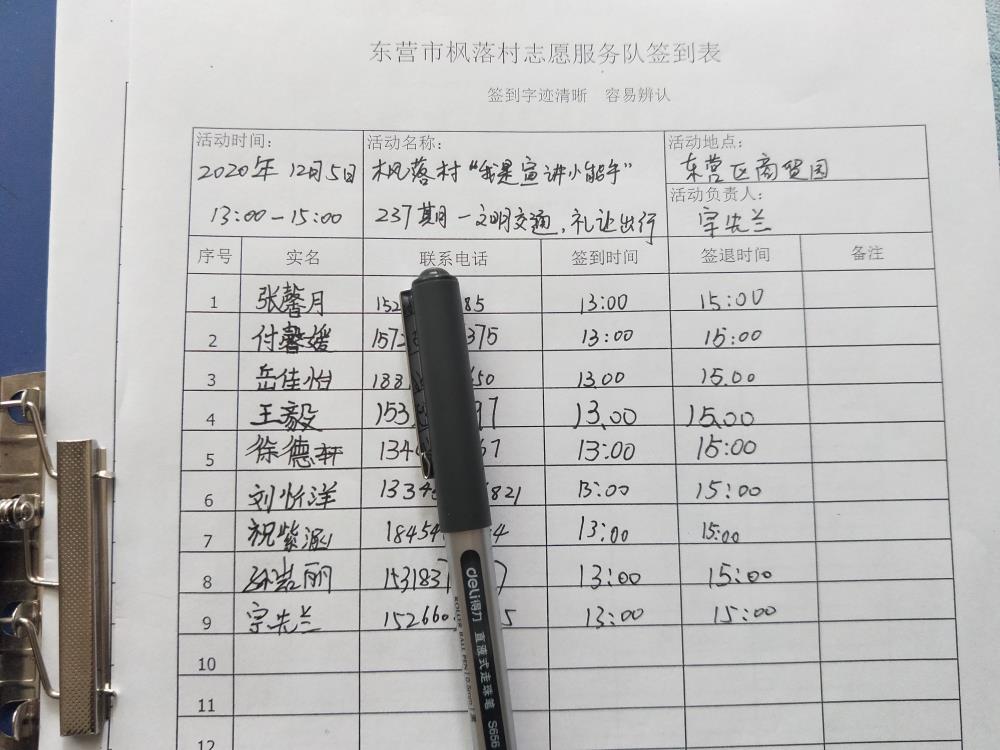 东营市枫落村志愿服务队签到表
签到字迹清晰 容易辨认
活动时间: 活动名称: 活动地点:
2020年12月5日 枫落村“我是宣讲小能手” 东营区商贸园
活动负责人:
13:00-15:00 237期-文明交通,礼让出行 宗先兰
序号 实名 联系电话 签到时间 签退时间 备注
1 张馨月 152 85 13:00 15:00
2 付馨媛 157 375 13:00 15:00
3 岳佳怡 188 650 13.00 15.00
4 王毅 153 97 13.00 15.00
5 徐德轩 134 67 13:00 15:00
6 刘忻洋 1334 821 13:00 15:00
7 祝紫涵 1845 4 13:00 15:00
8 孙岩丽 153183 7 13:00 15:00
9 宗先兰 152660 5 13:00 15:00
10
11
12
deli得力 直液式走珠笔 S656
ROLLER BALL PEN 0.5mm